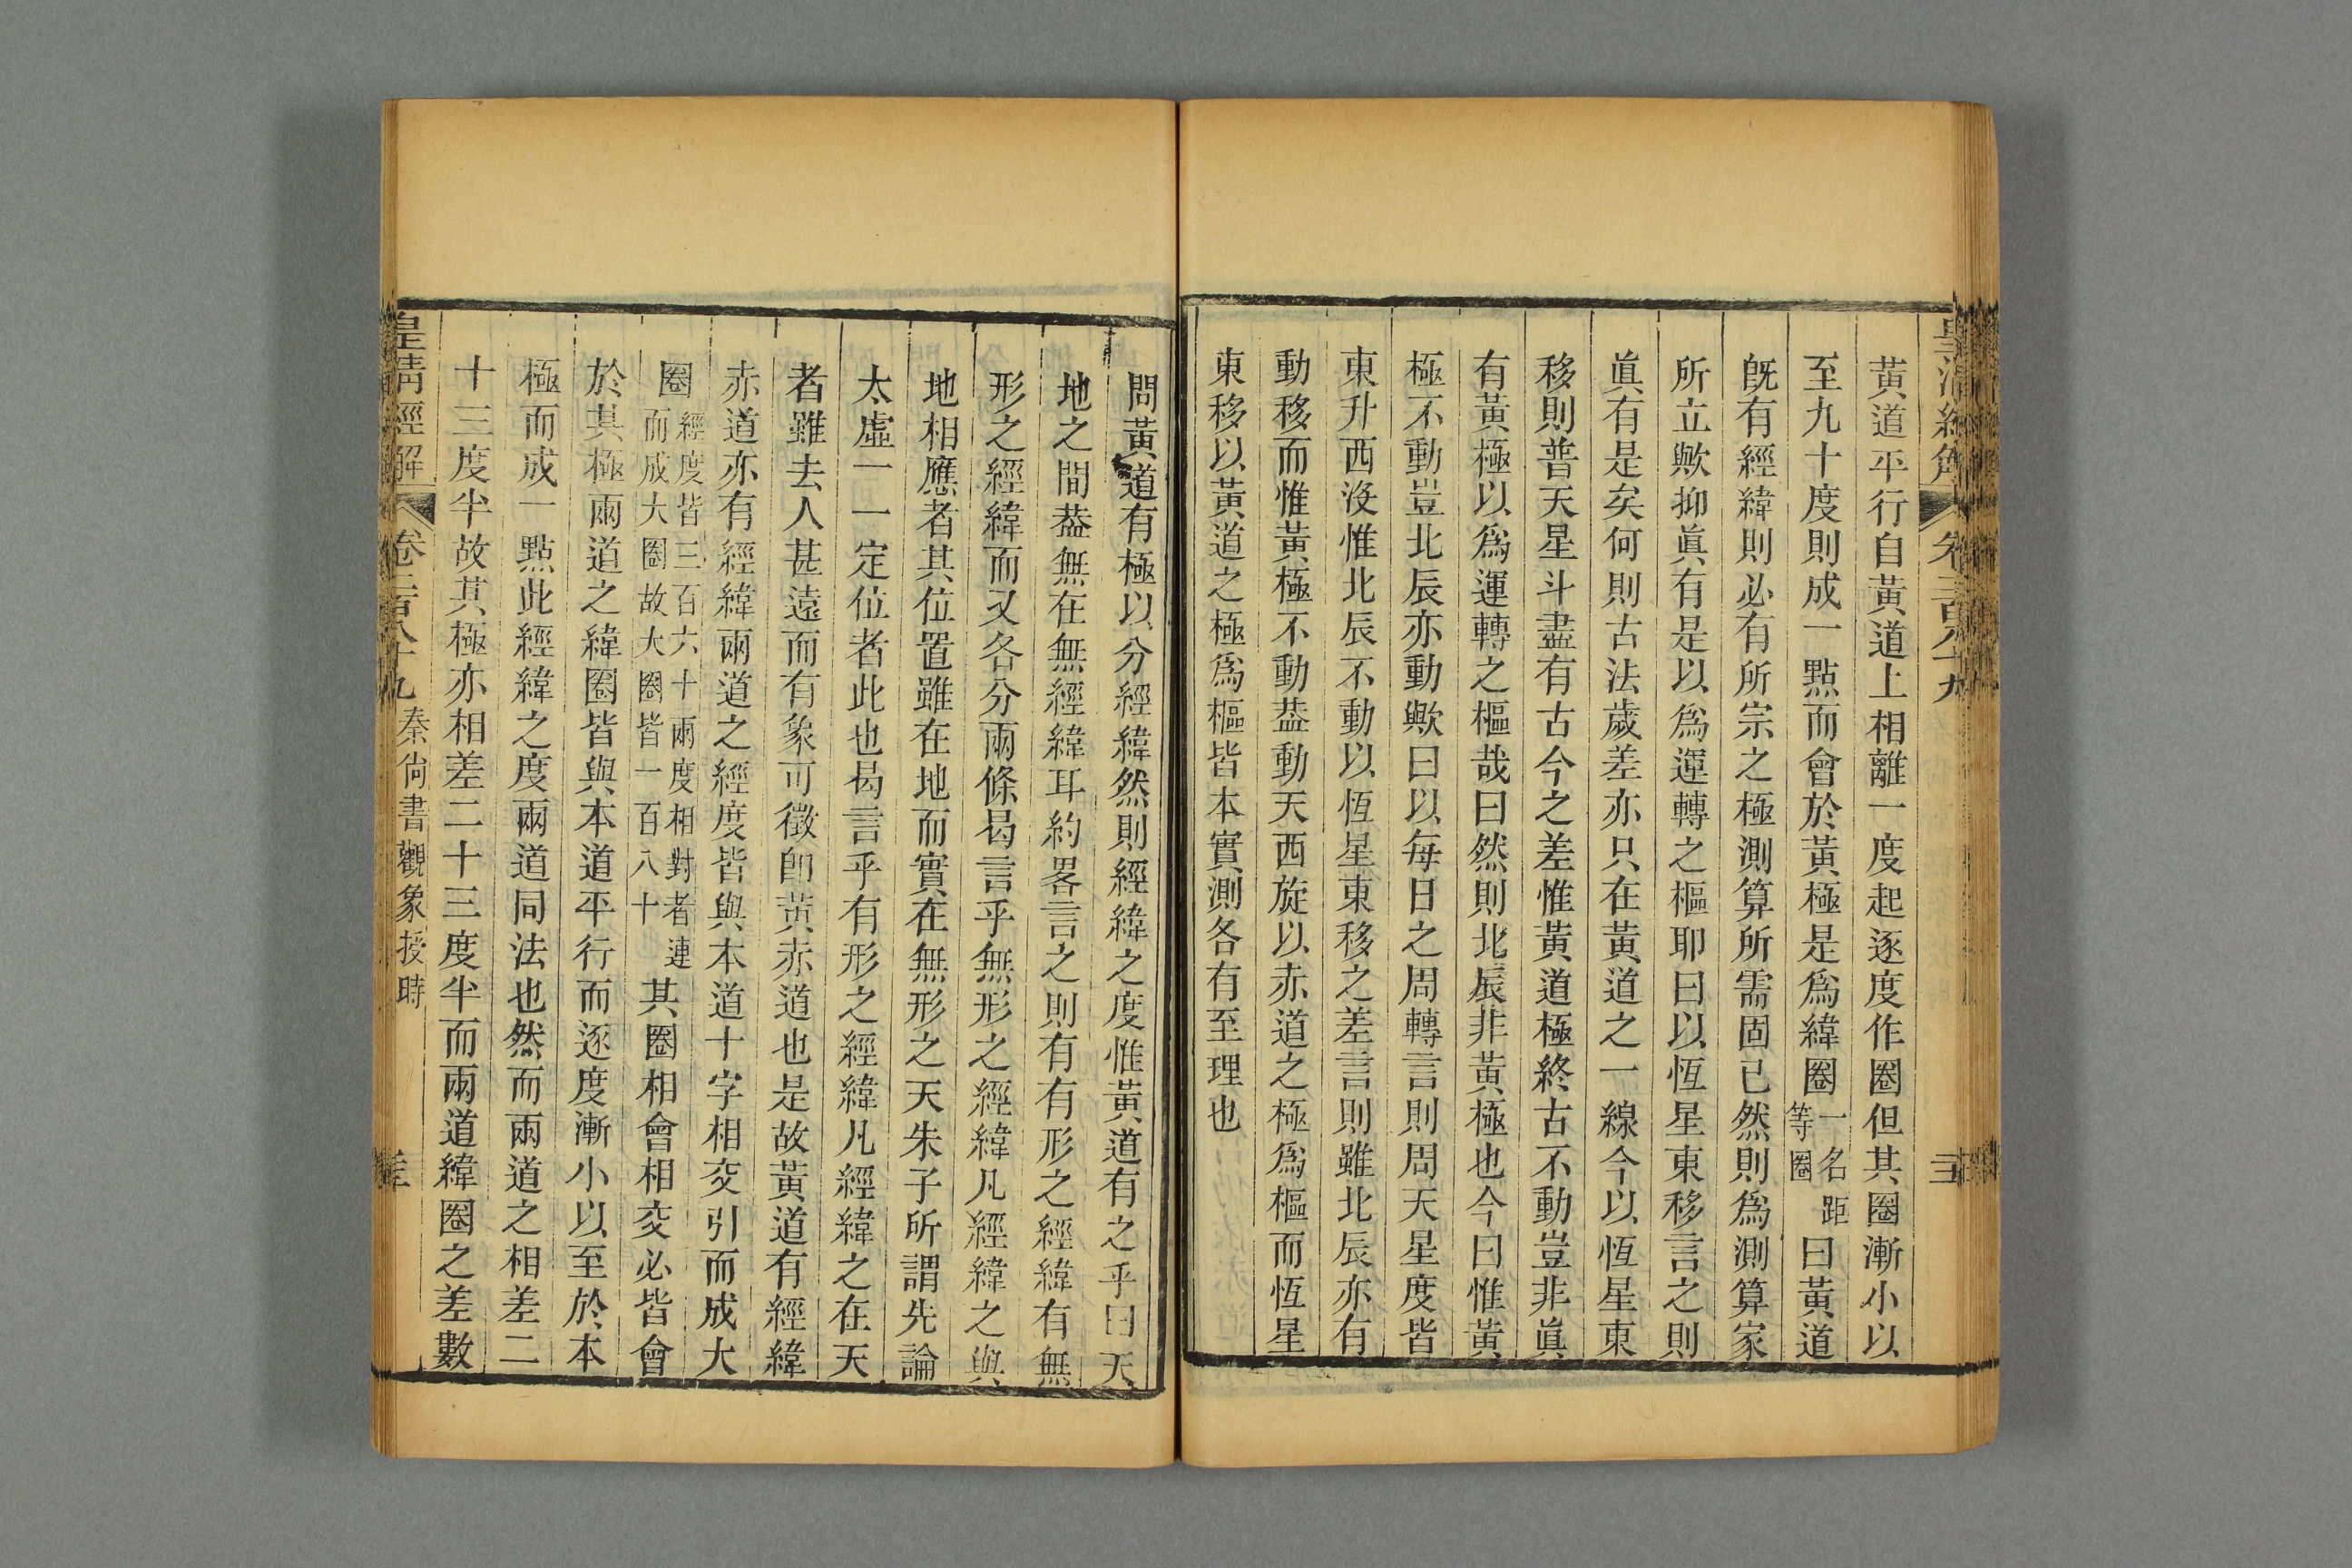 黃道平行自黃道上相離一度起逐度作圈但其圈漸小以
至九十度則成一點而會於黃極是爲緯圈一名距等圈曰黃道
旣有經緯則必有所宗之極測算所需固已然則爲測算家
所立歟抑眞有是以爲運轉之樞耶曰以恆星東移言之則
眞有是矣何則古法歲差亦只在黃道之一線今以恆星東
移則普天星斗盡有古今之差惟黃道極終古不動豈非眞
有黃極以爲運轉之樞哉曰然則北辰非黃極也今曰惟黃
極不動豈北辰亦動歟曰以每日之周轉言則周天星度皆
東升西沒惟北辰不動以恆星東移之差言則雖北辰亦有
動移而惟黃極不動葢動天西旋以赤道之極爲樞而恆星
東移以黃道之極爲樞皆本實測各有至理也
問黃道有極以分經緯然則經緯之度惟黃道有之乎曰天
地之間葢無在無經緯耳約畧言之則有有形之經緯有無
形之經緯而又各分兩條曷言乎無形之經緯凡經緯之與
地相應者其位置雖在地而實在無形之天朱子所謂先論
太虛一一定位者此也曷言乎有形之經緯凡經緯之在天
者雖去人甚遠而有象可徵卽黃赤道也是故黃道有經緯
赤道亦有經緯兩道之經度皆與本道十字相交引而成大
圈經度皆三百六十兩度相對者連而成大圈故大圈皆一百八十其圈相會相交必皆會
於其極兩道之緯圈皆與本道平行而逐度漸小以至於本
極而成一點此經緯之度兩道同法也然而兩道之相差二
十三度半故其極亦相差二十三度半而兩道緯圈之差數
皇清經解 卷二百八十九 秦尙書觀象授時